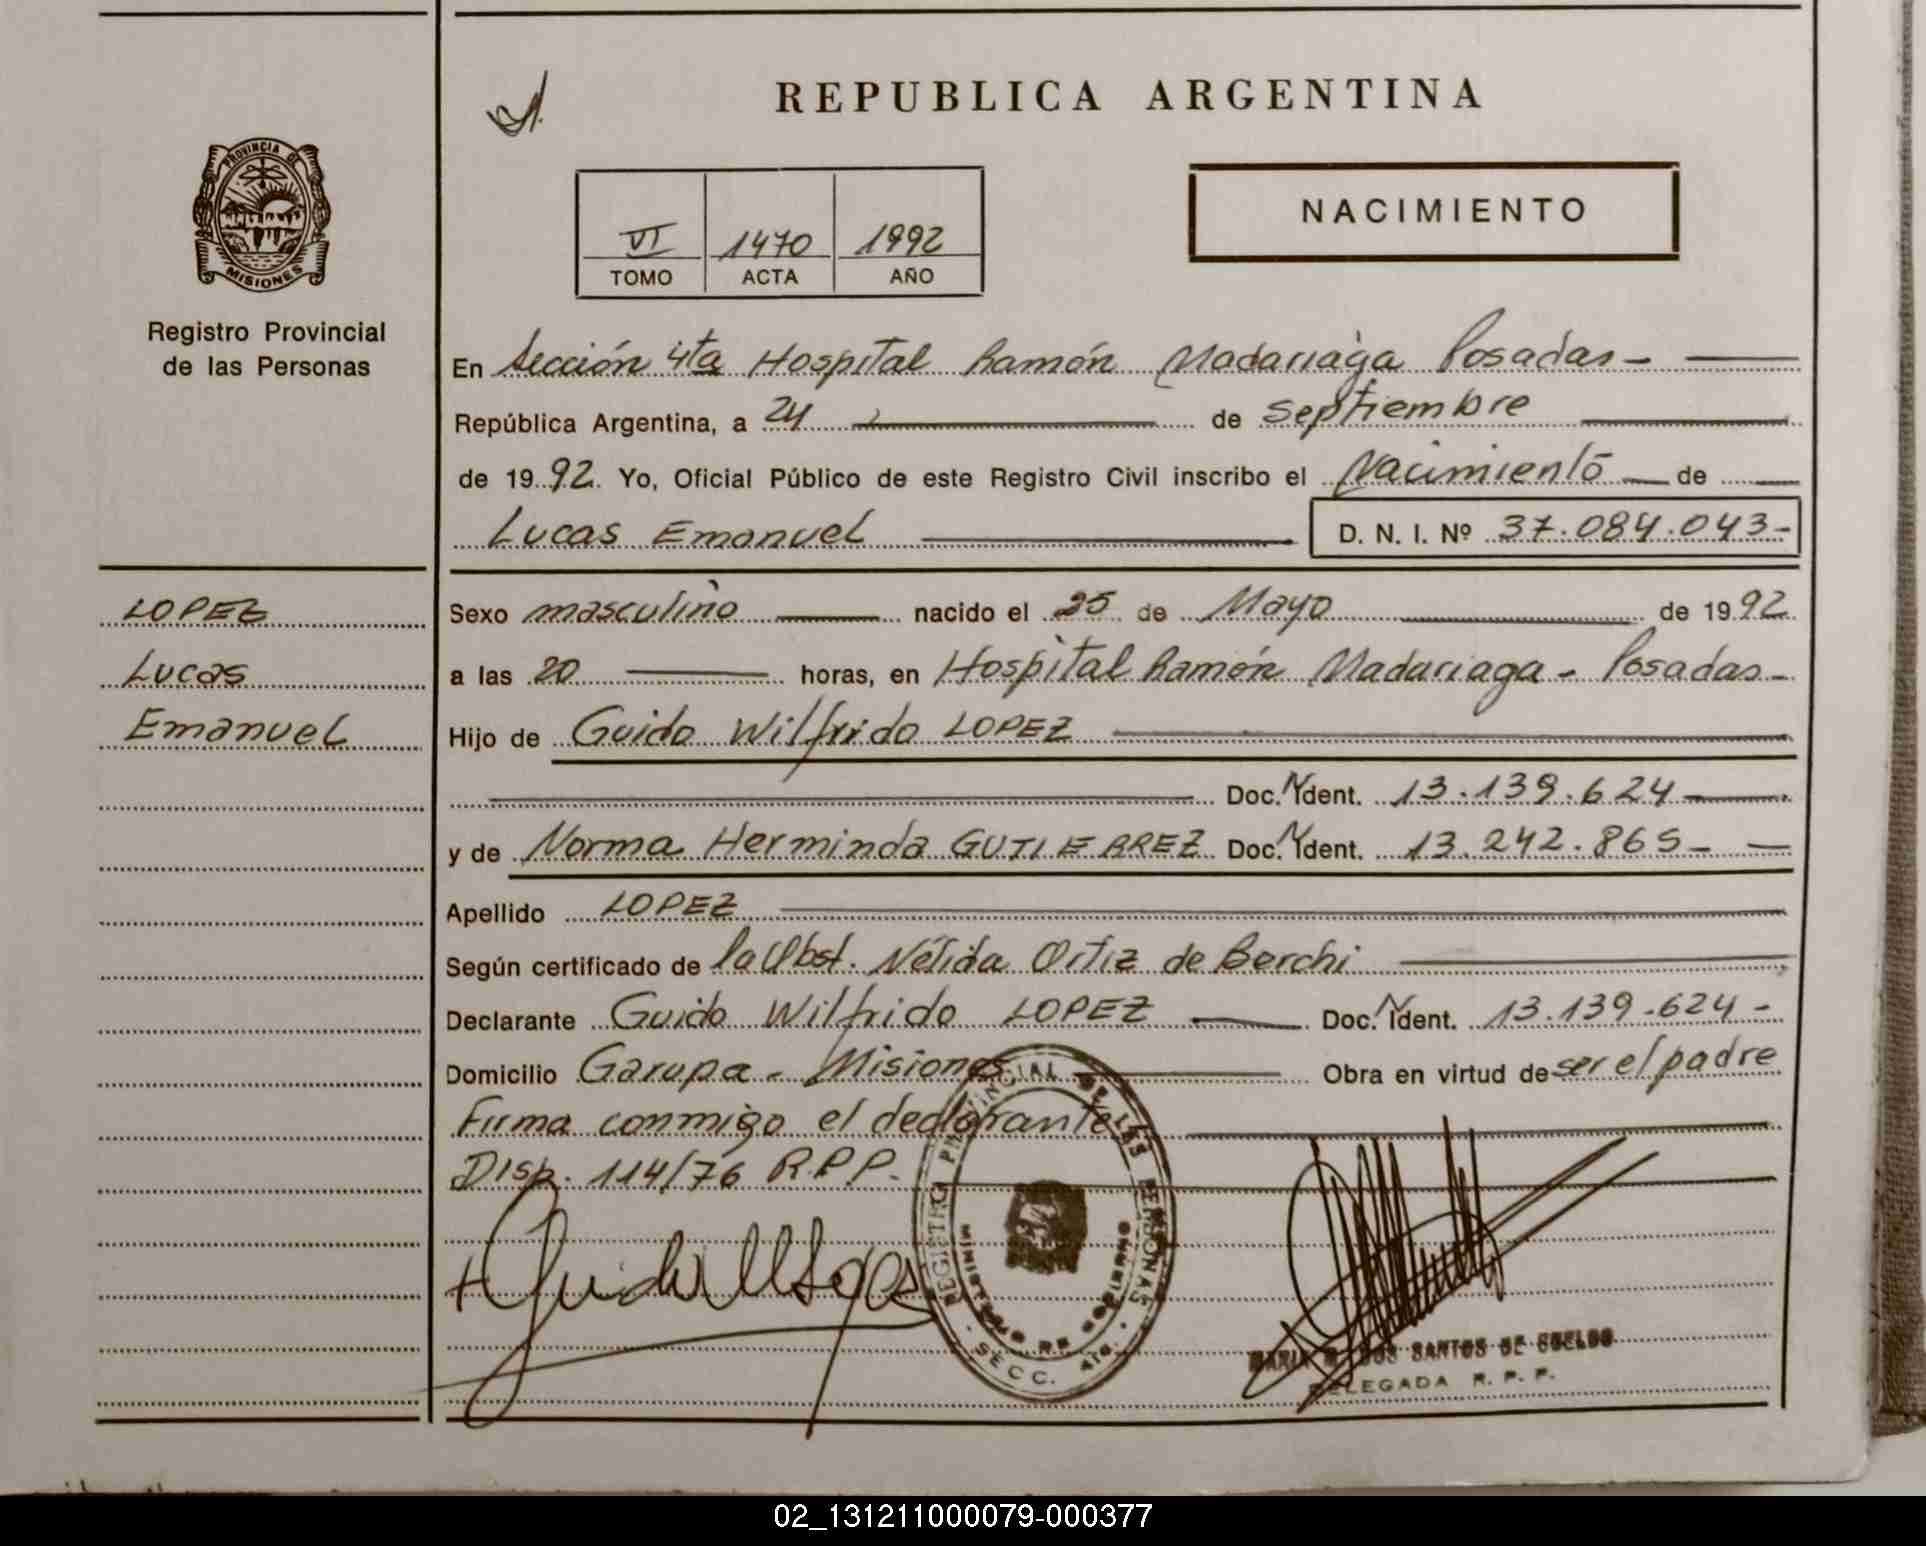 REPUBLICA ARGENTINA
PROVINCIA DE
MISIONES
Registro Provincial
de las Personas
VI 1470 1992
TOMO ACTA AÑO
NACIMIENTO
En Sección 4ta Hospital Ramón Madariaga Posadas-
República Argentina, a 24 de septiembre
de 1992. Yo, Oficial Público de este Registro Civil inscribo el Nacimiento de
Lucas Emanuel D. N. I. Nº 37.084.043-
LOPEZ
Lucas
Emanuel
Sexo masculino nacido el 25 de Mayo de 1992
a las 20 horas, en Hospital Ramón Madariaga - Posadas-
Hijo de Guido Wilfrido LOPEZ
Doc. N Ident. 13.139.624
y de Norma Herminda GUTIERREZ Doc. N Ident. 13.242.865-
Apellido LOPEZ
Según certificado de la Obst. Nélida Ortiz de Berchi
Declarante Guido Wilfrido LOPEZ Doc. N Ident. 13.139.624-
Domicilio Garupa - Misiones Obra en virtud de ser el padre
Firma conmigo el declarante
Disp. 114/76 R.P.P.
REGISTRO PROVINCIAL DE LAS PERSONAS
MINISTERIO DE GOBIERNO
SECC. 4ta.
SANTOS DE
DELEGADA R. P. P.
02_131211000079-000377